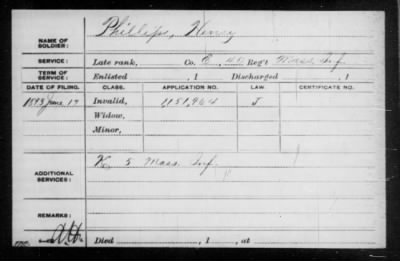 NAME OF SOLDIER: Phillips, Henry
SERVICE: Late rank, Co. E, 40 Reg't Mass. Inf.
TERM OF SERVICE: Enlisted , 1 Discharged , 1
DATE OF FILING. CLASS. APPLICATION NO. LAW. CERTIFICATE NO.
1893 June 17 Invalid, 1151,964 J
Widow,
Minor,
ADDITIONAL SERVICES: K, 5 Mass. Inf.
REMARKS:
Died , 1 , at